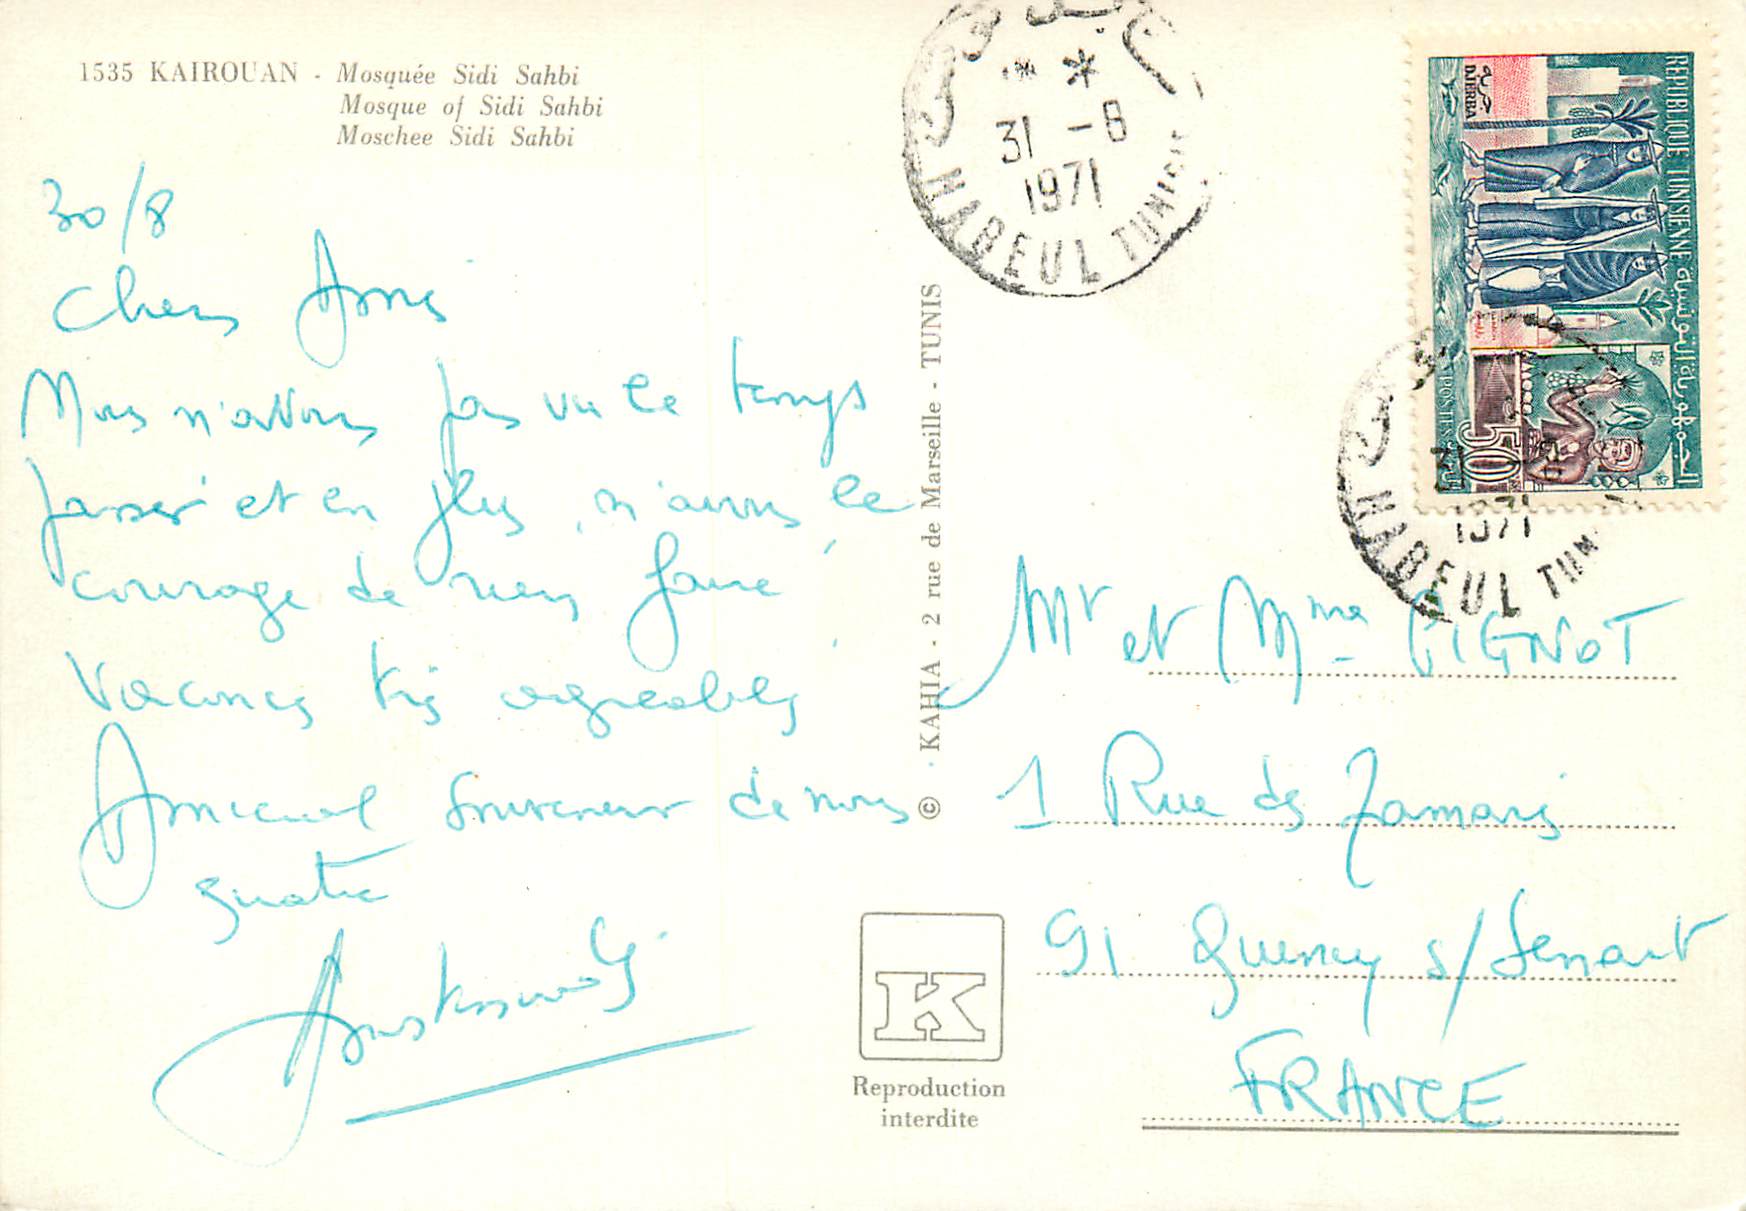 1535 KAIROUAN - Mosquée Sidi Sahbi
Mosque of Sidi Sahbi
Moschee Sidi Sahbi
30/8
Chers Amis
Nous n'avons pas vu le temps
passer et en plus, n'avons le
courage de rien faire
Vacances très agréables
Amical souvenir de nous
quatre
© - KAHIA - 2 rue de Marseille - TUNIS
K
Reproduction
interdite
* *
31 -8
1971
NABEUL TUNISIE
REPUBLIQUE TUNISIENNE الجمهورية التونسية
جربة
DJERBA
POSTES
50
31
1971
NABEUL TUNI
Mr et Mme PIGNOT
1 Rue des Tamaris
91 Quincy s/Senart
FRANCE